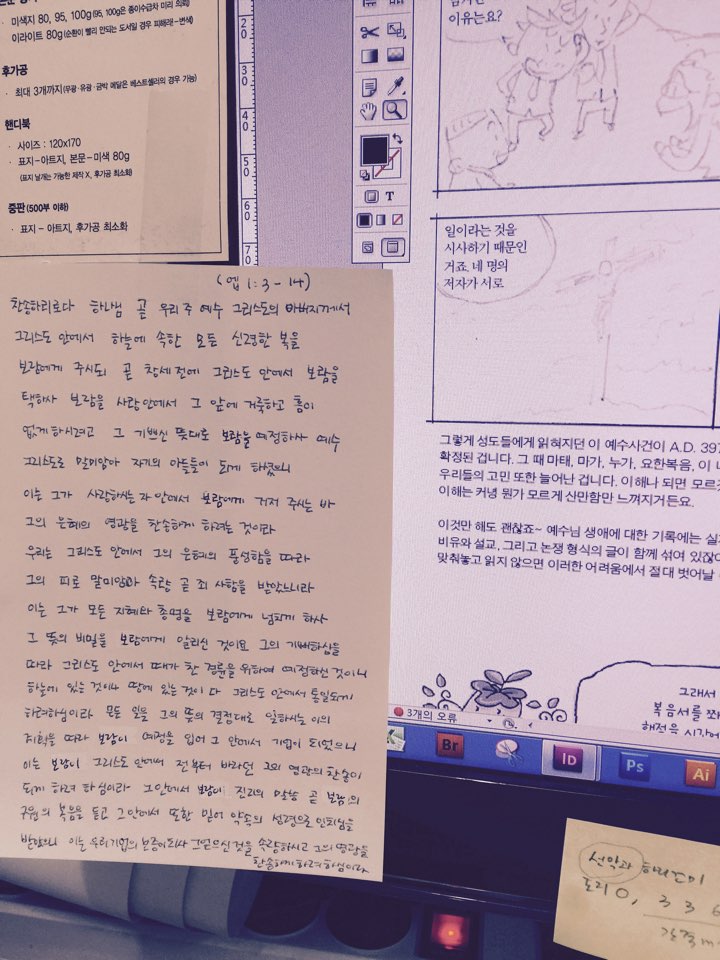 · 미색지 80, 95, 100g(95, 100g은 종이수급차 미리 의뢰)
이라이트 80g(순환이 빨리 안되는 도서일 경우 피해래-변색)
후가공
· 최대 3개까지(무광·유광·금박 메달은 베스트셀러의 경우 가능)
핸디북
· 사이즈 : 120x170
· 표지-아트지, 본문-미색 80g
(표지 날개는 가능한 제작 X, 후가공 최소화)
중판 (500부 이하)
· 표지 - 아트지, 후가공 최소화
(엡 1:3-14)
찬송하리로다 하나님 곧 우리 주 예수 그리스도의 아버지께서
그리스도 안에서 하늘에 속한 모든 신령한 복을
보람에게 주시되 곧 창세 전에 그리스도 안에서 보람을
택하사 보람을 사랑 안에서 그 앞에 거룩하고 흠이
없게 하시려고 그 기쁘신 뜻대로 보람을 예정하사 예수
그리스도로 말미암아 자기의 아들들이 되게 하셨으니
이는 그가 사랑하시는 자 안에서 보람에게 거저 주시는 바
그의 은혜의 영광을 찬송하게 하려는 것이라
우리는 그리스도 안에서 그의 은혜의 풍성함을 따라
그의 피로 말미암아 속량 곧 죄 사함을 받았느니라
이는 그가 모든 지혜와 총명을 보람에게 넘치게 하사
그 뜻의 비밀을 보람에게 알리신 것이요 그의 기뻐하심을
따라 그리스도 안에서 때가 찬 경륜을 위하여 예정하신 것이니
하늘에 있는 것이나 땅에 있는 것이 다 그리스도 안에서 통일되게
하려하심이라 모든 일을 그의 뜻의 결정대로 일하시는 이의
계획을 따라 보람이 예정을 입어 그 안에서 기업이 되었으니
이는 보람이 그리스도 안에서 전부터 바라던 그의 영광의 찬송이
되게 하려 하심이라 그 안에서 보람이 진리의 말씀 곧 보람의
구원의 복음을 듣고 그 안에서 또한 믿어 약속의 성령으로 인치심을
받았으니 이는 우리 기업의 보증이 되사 그 얻으신 것을 속량하시고 그의 영광을
찬송하게 하려 하심이라
20
30
40
50
60
70
T
이유는요?
일이라는 것을
시사하기 때문인
거죠. 네 명의
저자가 서로
그렇게 성도들에게 읽혀지던 이 예수사건이 A.D. 397
확정된 겁니다. 그 때 마태, 마가, 누가, 요한복음, 이 나
우리들의 고민 또한 늘어난 겁니다. 이해나 되면 모르
이해는 커녕 뭔가 모르게 산만함만 느껴지거든요.
이것만 해도 괜찮죠~ 예수님 생애에 대한 기록에는 실
비유와 설교, 그리고 논쟁 형식의 글이 함께 섞여 있잖아
맞춰놓고 읽지 않으면 이러한 어려움에서 절대 벗어날
그래서
복음서를 쪼
해전육 시간에
3개의 오류
Br
ID
Ps
Ai
선악과 하와
0, 3 3 6